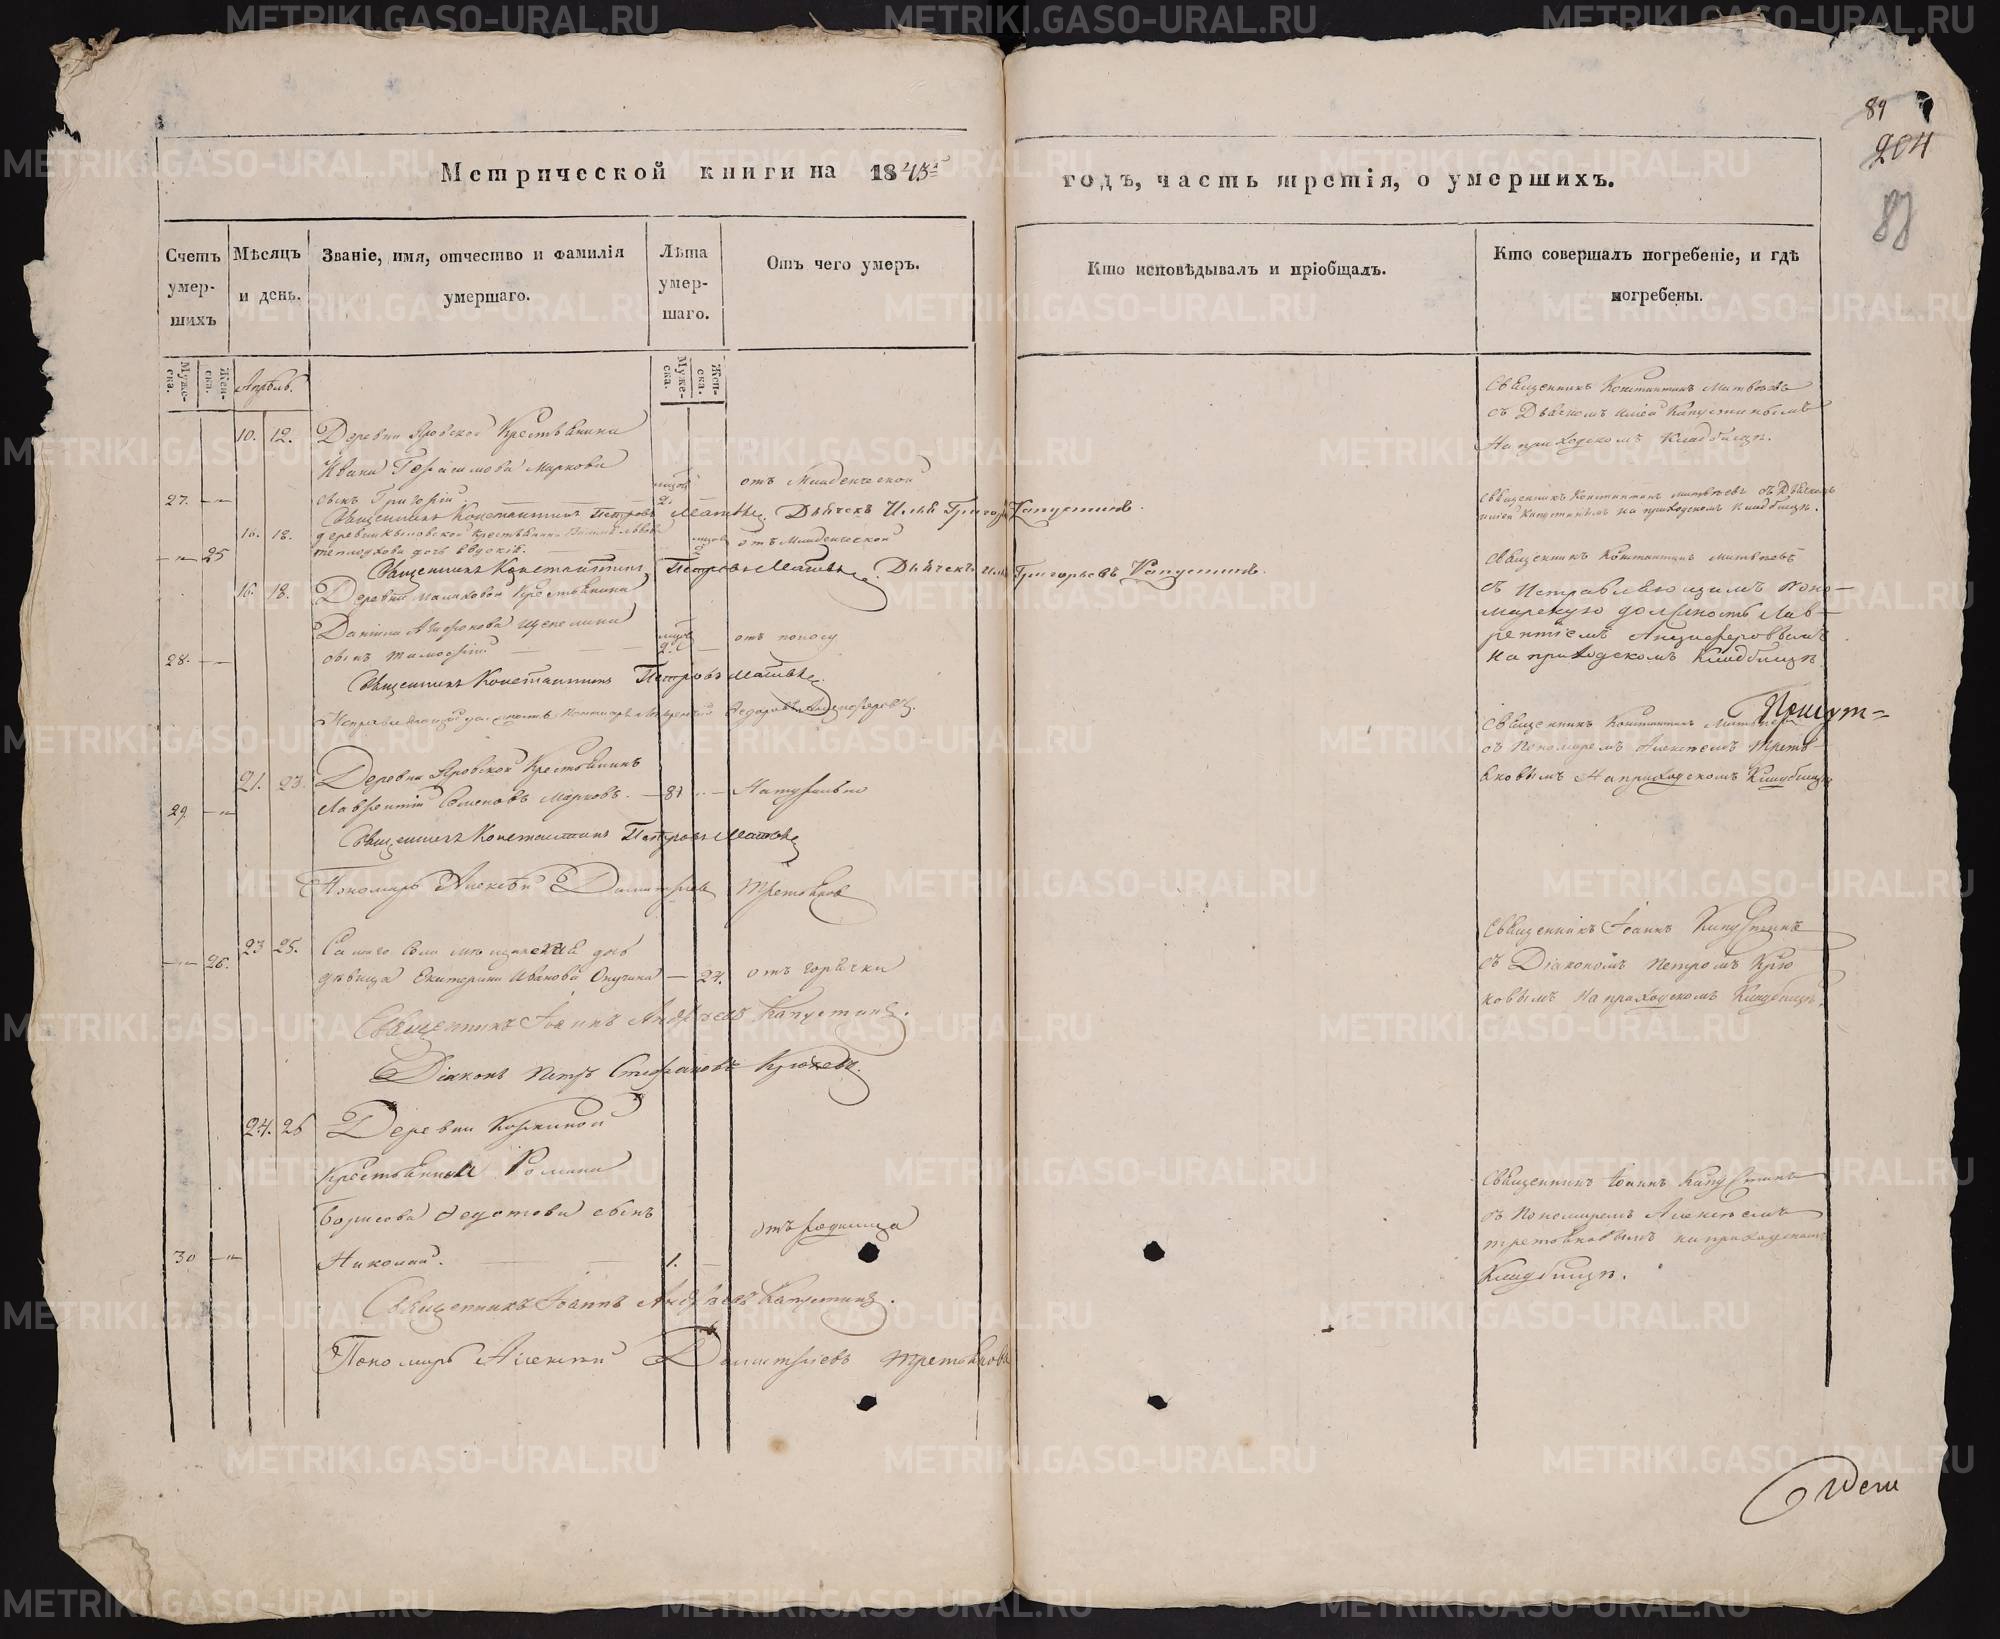 89
204
88
Метрической книги на 1845
годъ, часть третія, о умершихъ.
Счетъ умер-шихъ
Мѣсяцъ и день.
Званіе, имя, отчество и фамилія умершаго.
Лѣта умер-шаго.
Отъ чего умеръ.
Кто исповѣдывалъ и пріобщалъ.
Кто совершалъ погребеніе, и гдѣ погребены.
Муже-ска.
Жен-ска.
Муже-ска.
Жен-ска.
Апрѣль.
10. 12. Деревни Яровской Крестьянина
Ивана Герасимова Маркова
27. сынъ Григорій. 2. отъ Младенческой
Священникъ Константинъ Матвѣевъ
съ Дьячкомъ Иліей Капустинымъ
На приходскомъ Кладбищѣ.
Священникъ Константинъ Петровъ Матвѣевъ. Дьячекъ Илья Григорьевъ Капустинъ.
16. 18. деревни Крестьянина
25 дочь Евдокія. отъ Младенческой
Священникъ Константинъ Матвѣевъ съ Дьячкомъ
Иліей Капустинымъ на приходскомъ Кладбищѣ.
Священникъ Константинъ Петровъ Матвѣевъ. Дьячекъ Илья Григорьевъ Капустинъ.
16. 18. Деревни Малаковой Крестьянина
Даніила Щепелина
28. сынъ Тимофій 2. отъ поносу
Священникъ Константинъ Матвѣевъ
съ Исправляющимъ Поно-
марскую должность Лав-
рентіемъ Анциферовымъ
на приходскомъ Кладбищѣ
Священникъ Константинъ Петровъ Матвѣевъ.
Исправляющій должность Пономаря Лаврентій Федоровъ Анциферовъ.
21. 23. Деревни Яровской Крестьянинъ
29. Лаврентій Семеновъ Марковъ. 81 Натурально
Священникъ Константинъ Матвѣевъ
съ Пономаремъ Алексѣемъ Треть-
яковымъ На приходскомъ Кладбищѣ
Священникъ Константинъ Петровъ Матвѣевъ
Пономарь Алексѣй Димитріевъ Третьяковъ
23 25. Самаго Села
26. дѣвица Екатерина Иванова 24. отъ горячки
Священникъ Іоаннъ Капустинъ
съ Діакономъ Петромъ Крю
ковымъ На приходскомъ Кладбищѣ.
Священникъ Іоаннъ Андреевъ Капустинъ.
Діаконъ Петръ Стефановъ Крюковъ.
24. 26 Деревни Коркиной
Крестьянина Романа
Борисова Федотова сынъ
30 Николай. 1. отъ родимца
Священникъ Іоаннъ Капустинъ
съ Пономаремъ Алексѣемъ
Третьяковымъ на приходскомъ
Кладбищѣ.
Священникъ Іоаннъ Андреевъ Капустинъ.
Пономарь Алексѣй Димитріевъ Третьяковъ